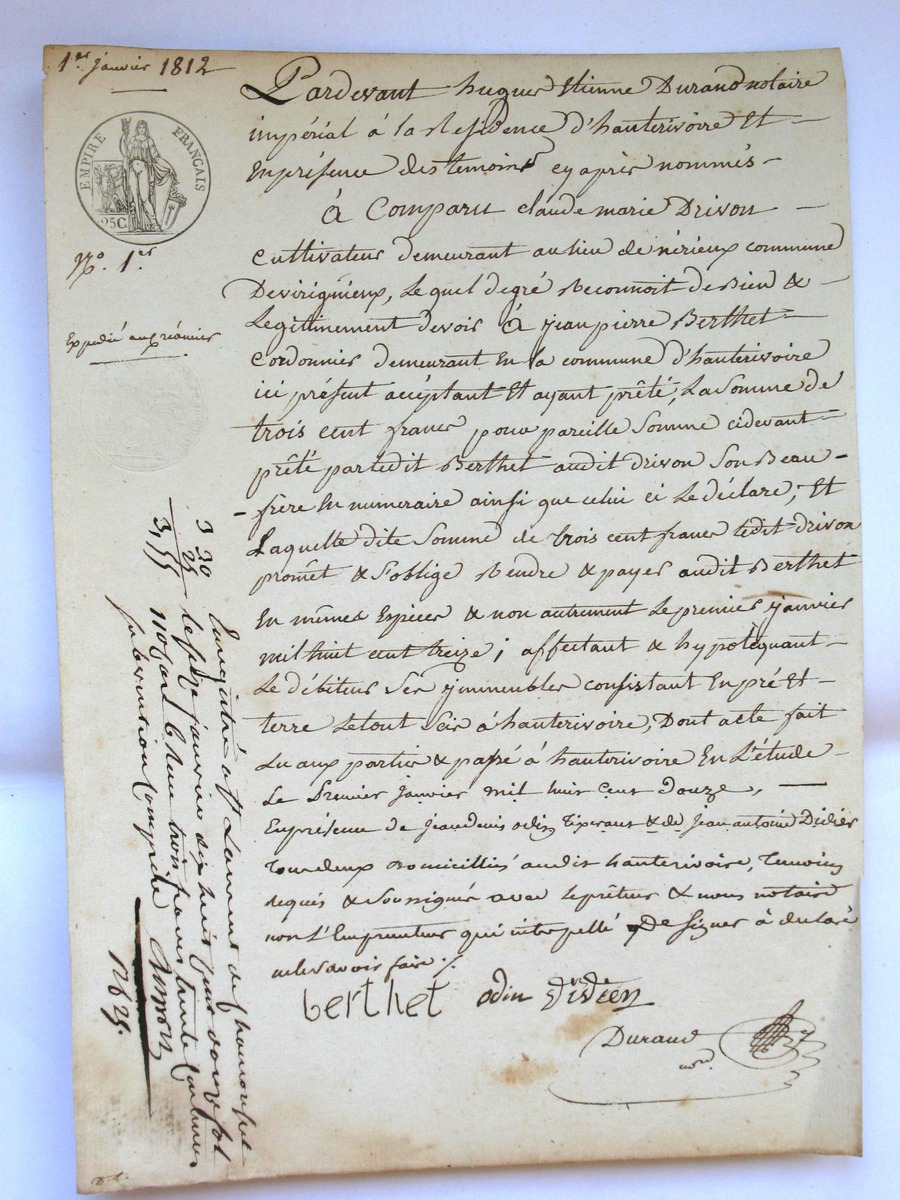 1.er Janvier 1812
EMPIRE FRANÇAIS
25C.
N.o 1.er
Expédié au créancier
Pardevant hugues Etienne Durand notaire
impérial à la Residence d'hauterivoire Et
En présence des temoins cy après nommés
à Comparu claude marie Drivon
cultivateur demeurant au lieu de nérieux commune
De virignieux, Lequel degré Reconnoit de Bien &
Legitimement devoir à jean pierre Berthet
cordonnier demeurant En la commune d'hauterivoire
ici présent acceptant Et ayant prêté, La somme de
trois cent francs pour pareille somme cidevant
prêté par ledit Berthet audit drivon son Beau
frère En numeraire ainsi que celui ci Le déclare, Et
Laquelle dite somme de trois cent francs ledit drivon
promet & s'oblige Rendre & payer audit Berthet
En mêmes Espèces & non autrement Le premier janvier
mil huit cent treize; affectant & hypotéquant
Le débiteur ses immeubles consistant En pré Et
terre Le tout sis à hauterivoire, Dont acte fait
Lu aux parties & passé à hauterivoire En L'étude
Le Premier Janvier mil huit cent douze,
En présence de Jean denis odin Tixerant & de jean antoine Didier
Tous deux domicilliés audit hauterivoire, Temoins
Requis & soussignés avec le prêteur & nous notaire
non L'Emprunteur qui interpellé de signer à declaré
ne le savoir faire ./.
berthet odin Didier
Durand
Enregistré à St Laurent de Chamousset
le janvier dix huit cent douze fol
110 Case 6 Reçu trois francs trente centimes
subvention Comprise
3 30
3,55